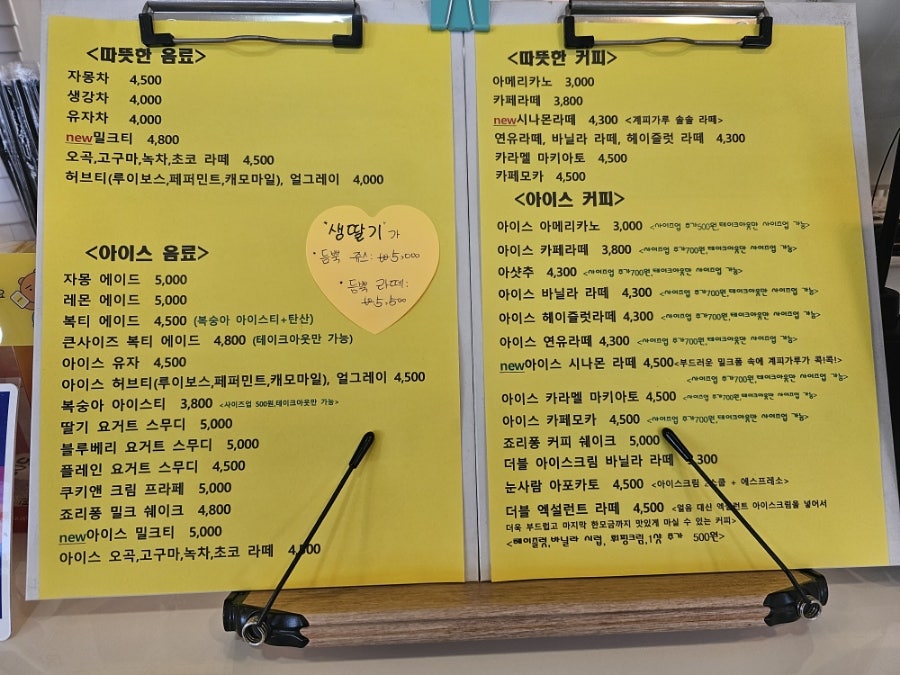 <따뜻한 음료>
자몽차 4,500
생강차 4,000
유자차 4,000
new밀크티 4,800
오곡,고구마,녹차,초코 라떼 4,500
허브티(루이보스,페퍼민트,캐모마일), 얼그레이 4,000
"생딸기"가
• 듬뿍 주스: ₩5,000
• 듬뿍 라떼:
₩5,500
<아이스 음료>
자몽 에이드 5,000
레몬 에이드 5,000
복티 에이드 4,500 (복숭아 아이스티+탄산)
큰사이즈 복티 에이드 4,800 (테이크아웃만 가능)
아이스 유자 4,500
아이스 허브티(루이보스,페퍼민트,캐모마일), 얼그레이 4,500
복숭아 아이스티 3,800 <사이즈업 500원,테이크아웃만 가능>
딸기 요거트 스무디 5,000
블루베리 요거트 스무디 5,000
플레인 요거트 스무디 4,500
쿠키앤 크림 프라페 5,000
죠리퐁 밀크 쉐이크 4,800
new아이스 밀크티 5,000
아이스 오곡,고구마,녹차,초코 라떼
<따뜻한 커피>
아메리카노 3,000
카페라떼 3,800
new시나몬라떼 4,300 <계피가루 솔솔 라떼>
연유라떼, 바닐라 라떼, 헤이즐럿 라떼 4,300
카라멜 마키아토 4,500
카페모카 4,500
<아이스 커피>
아이스 아메리카노 3,000 <사이즈업 추가500원,테이크아웃만 사이즈업 가능>
아이스 카페라떼 3,800 <사이즈업 추가700원,테이크아웃만 사이즈업 가능>
아샷추 4,300 <사이즈업 추가700원,테이크아웃만 사이즈업 가능>
아이스 바닐라 라떼 4,300 <사이즈업 추가700원,테이크아웃만 사이즈업 가능>
아이스 헤이즐럿라떼 4,300 <사이즈업 추가700원,테이크아웃만 사이즈업 가능>
아이스 연유라떼 4,300 <사이즈업 추가700원,테이크아웃만 사이즈업 가능>
new아이스 시나몬 라떼 4,500<부드러운 밀크폼 속에 계피가루가 콕!콕!>
<사이즈업 추가700원,테이크아웃만 사이즈업 가능>
아이스 카라멜 마키아토 4,500 <사이즈업 추가700원,테이크아웃만 사이즈업 가능>
아이스 카페모카 4,500 <사이즈업 추가700원,테이크아웃만 사이즈업 가능>
죠리퐁 커피 쉐이크 5,000
더블 아이스크림 바닐라 라떼
눈사람 아포카토 4,500 <아이스크림 2스쿱 + 에스프레소>
더블 엑설런트 라떼 4,500 <얼음 대신 엑설런트 아이스크림을 넣어서
더욱 부드럽고 마지막 한모금까지 맛있게 마실 수 있는 커피>
<헤이즐럿,바닐라 시럽, 휘핑크림,1샷 추가 500원>